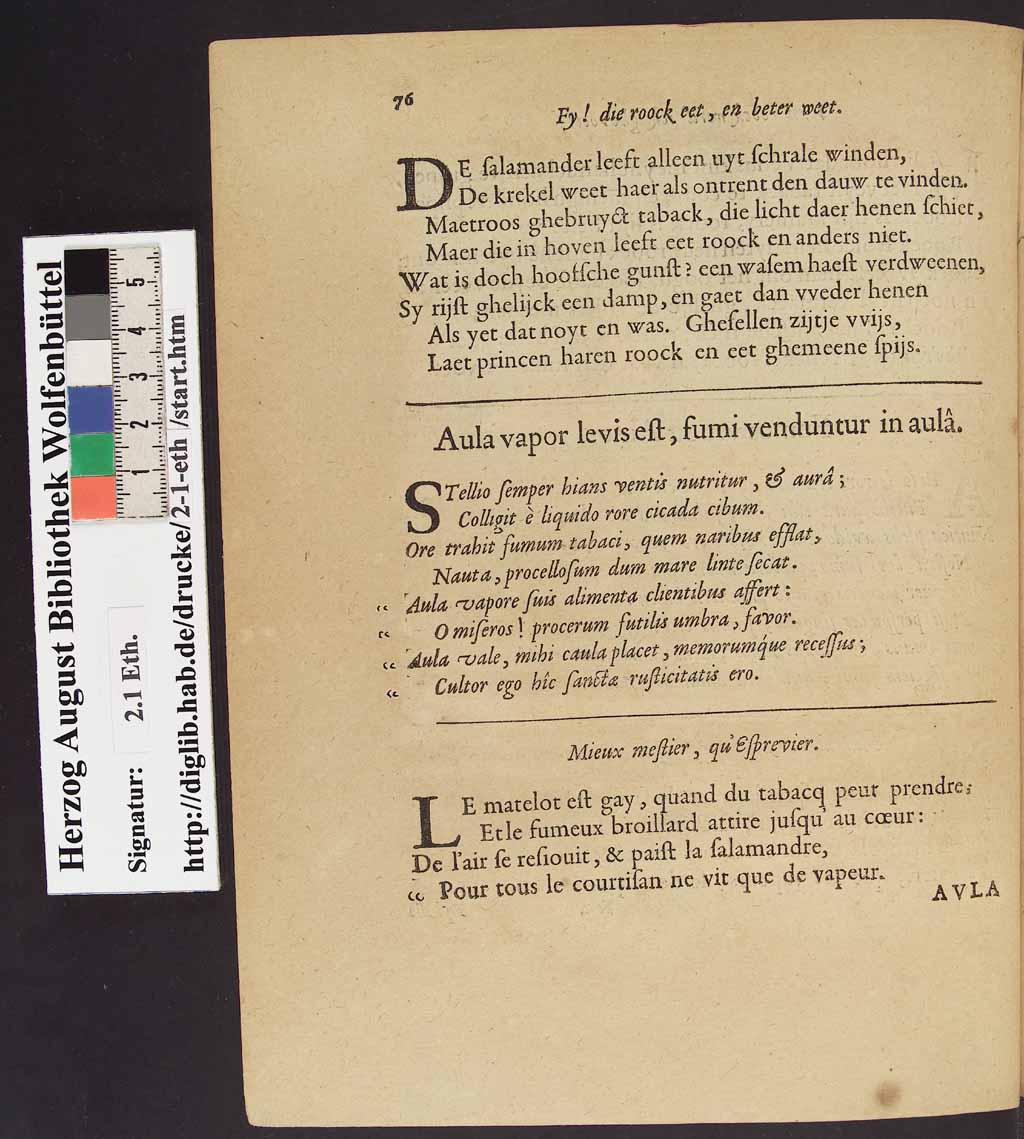 Herzog August Bibliothek Wolfenbüttel
Signatur: 2.1 Eth.
http://diglib.hab.de/drucke/2-1-eth /start.htm
1 2 3 4 5
76
Fy! die roock eet, en beter weet.
DE ſalamander leeft alleen uyt ſchrale winden,
De krekel weet haer als ontrent den dauw te vinden.
Maetroos ghebruyct taback, die licht daer henen ſchiet,
Maer die in hoven leeft eet roock en anders niet.
Wat is doch hooſſche gunſt? een waſem haeſt verdweenen,
Sy rijſt ghelijck een damp, en gaet dan vveder henen
Als yet dat noyt en was. Gheſellen zijtje vvijs,
Laet princen haren roock en eet ghemeene ſpijs.
Aula vapor levis eſt, fumi venduntur in aulâ.
STellio ſemper hians ventis nutritur, & aurâ;
Colligit è liquido rore cicada cibum.
Ore trahit fumum tabaci, quem naribus efflat,
Nauta, procelloſum dum mare linte ſecat.
“ Aula vapore ſuis alimenta clientibus affert:
“ O miſeros! procerum futilis umbra, favor.
“ Aula vale, mihi caula placet, memorumque receſſus;
“ Cultor ego hîc ſanctæ ruſticitatis ero.
Mieux meſtier, qu'Eſprevier.
LE matelot eſt gay, quand du tabacq peut prendre,
Et le fumeux broillard attire juſqu' au cœur:
De l'air ſe reſiouit, & paiſt la ſalamandre,
“ Pour tous le courtiſan ne vit que de vapeur.
AVLA